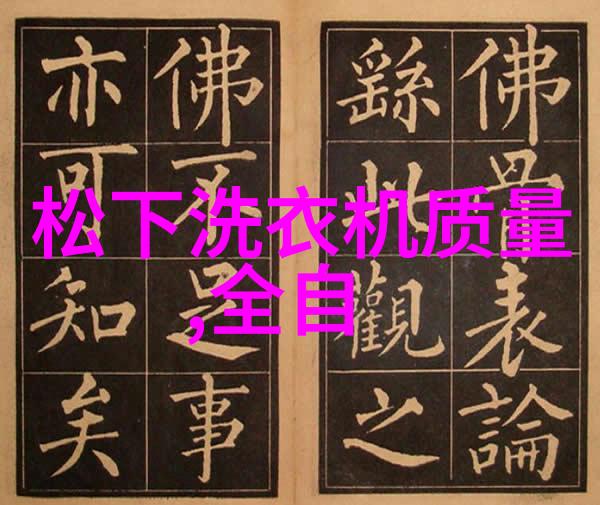 松下洗衣机质量
,全自
佛骨表論
繇此觀之
佛不足事
亦可知矣